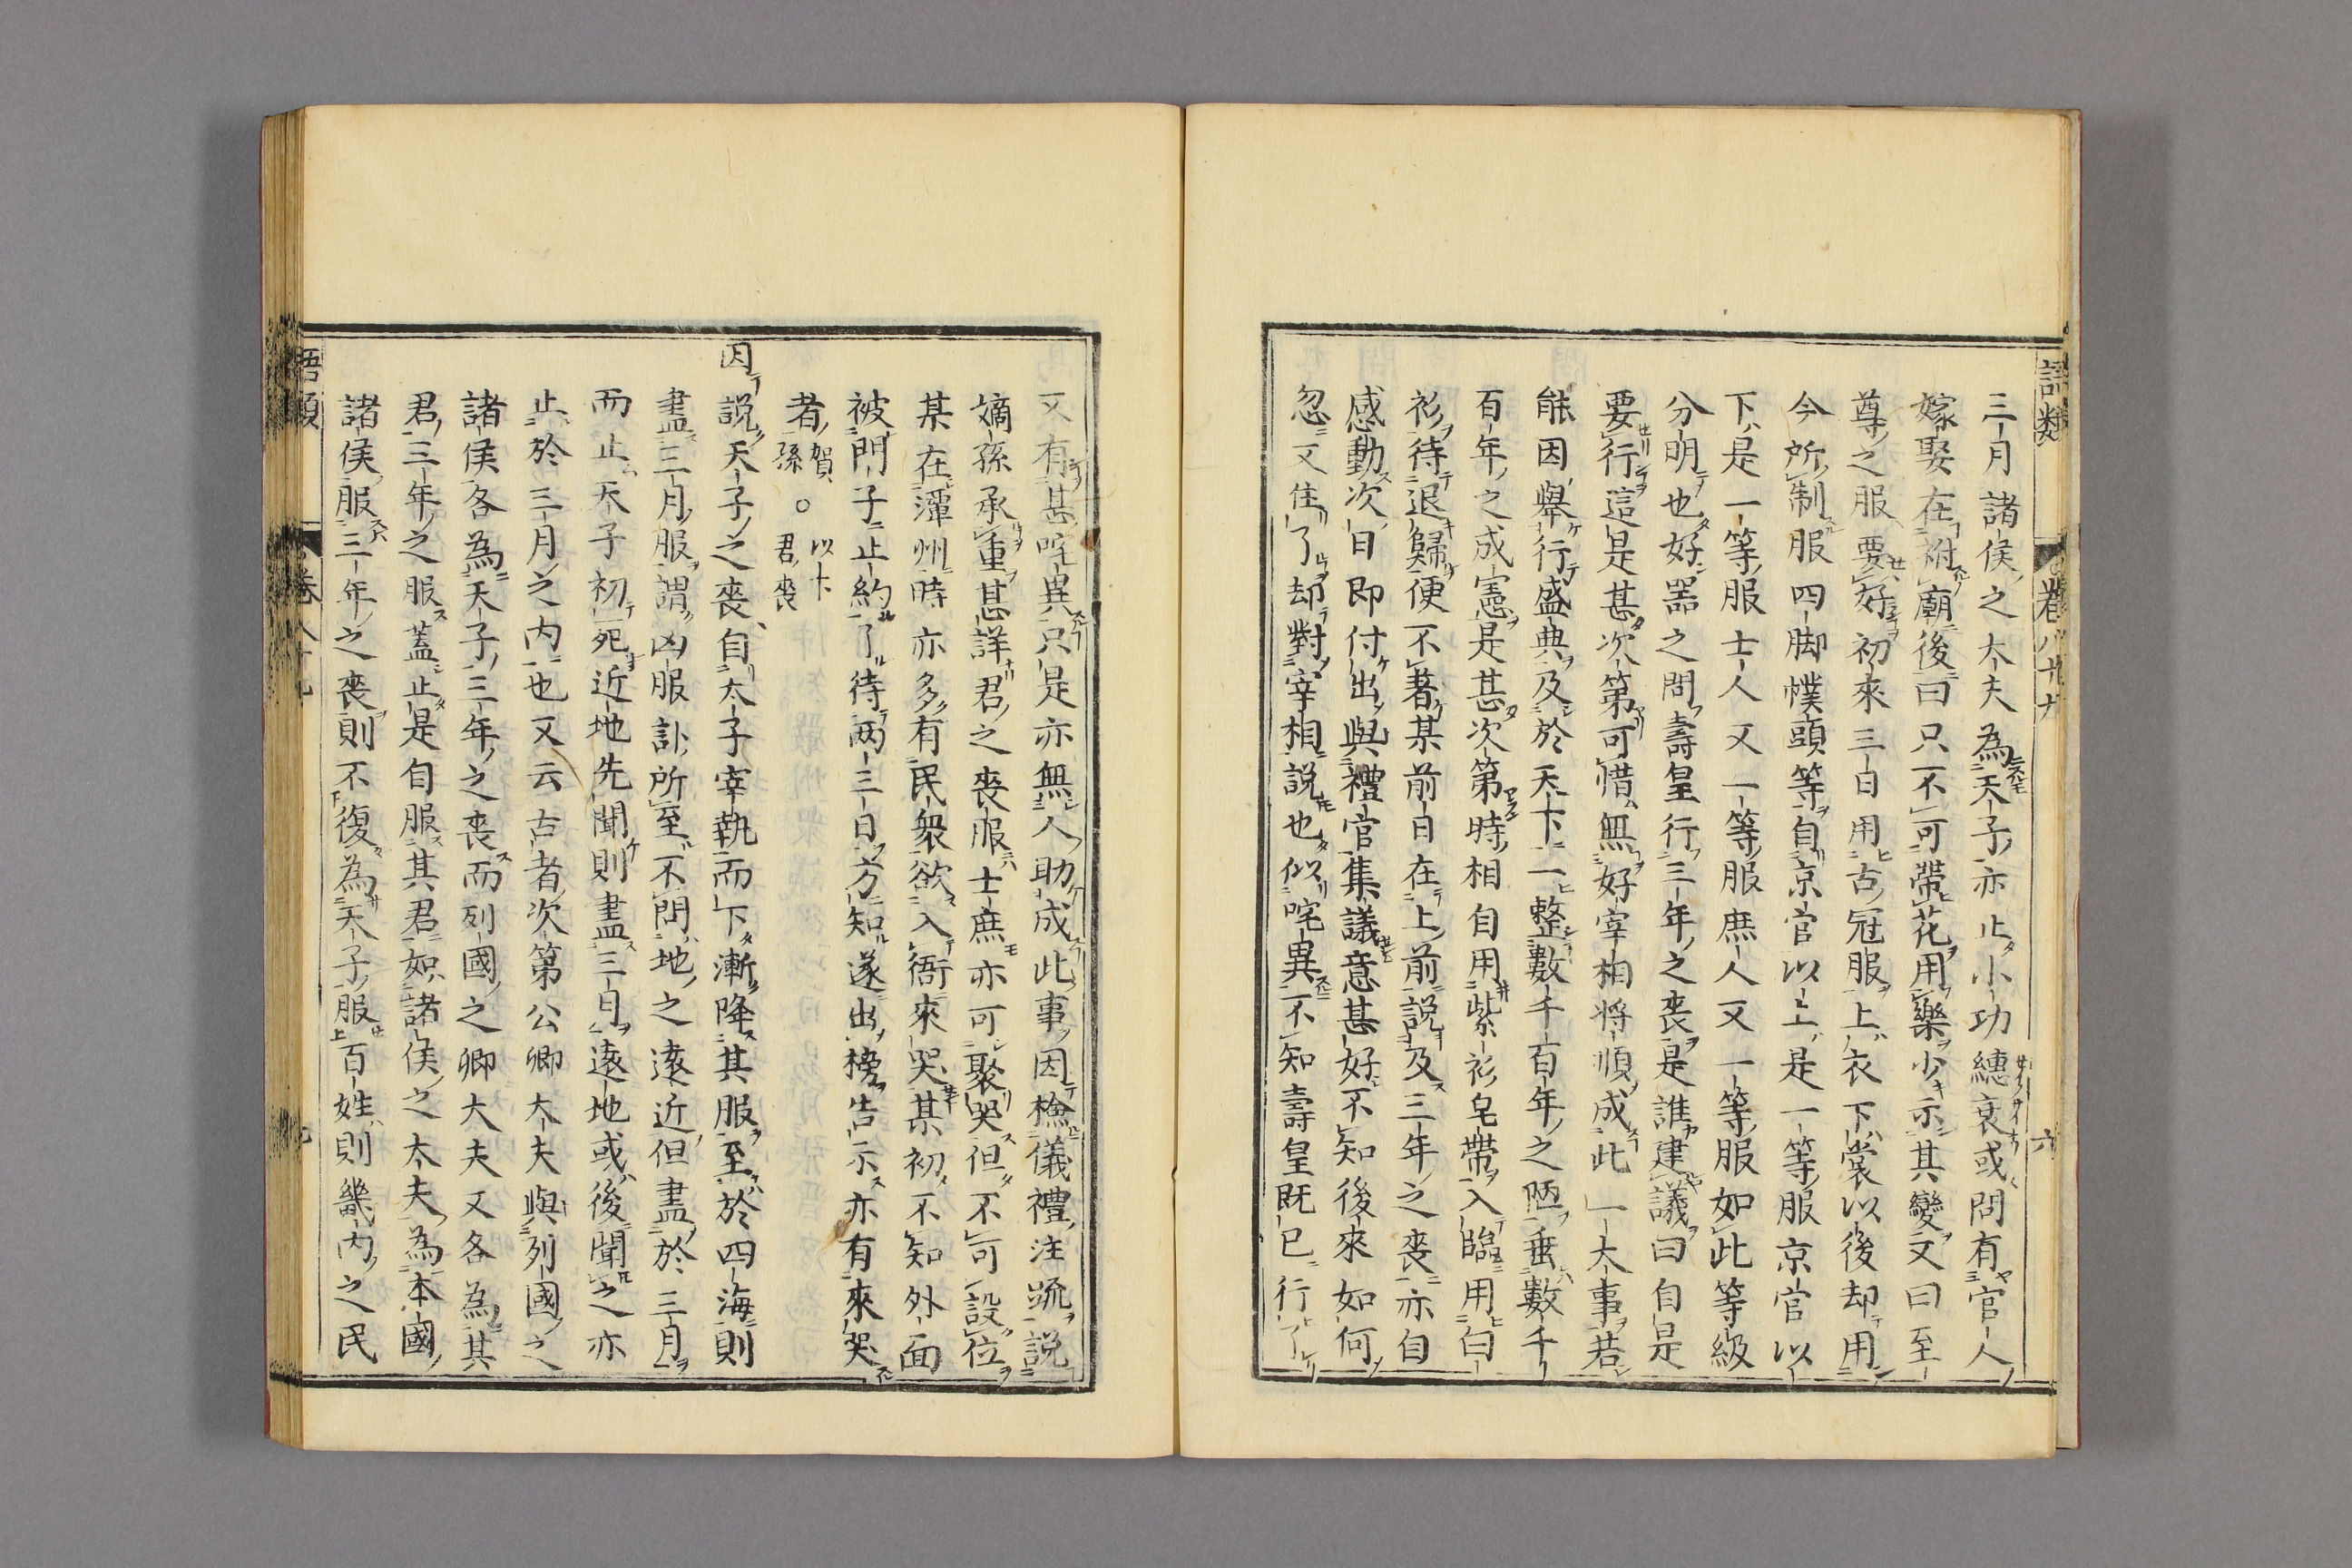 語類 卷八十九 六
三月諸侯之大夫為天子亦止小功繐衰或問有官人
嫁娶在祔廟後曰只不可帶花用樂少示其變又曰至
尊之服要好初來三日用古冠服上衣下裳以後却用
今所制服四脚幞頭等自京官以上是一等服京官以
下是一等服士人又一等服庶人又一等服如此等級
分明也好器之問壽皇行三年之喪是誰建議曰自是
要行這是甚次第可惜無好宰相將順成此一大事若
能因舉行盛典及於天下一整數千百年之陋垂數千
百年之成憲是甚次第時相自用紫衫皂帶入臨用白
衫待退歸便不著某前日在上前說及三年之喪亦自
感動次日即付出與禮官集議意甚好不知後來如何
忽又住了却對宰相說也似咤異不知壽皇既已行了
又有甚咤異只是亦無人助成此事因檢儀禮注疏說
嫡孫承重甚詳君之喪服士庶亦可聚哭但不可設位
某在潭州時亦多有民衆欲入衙來哭某初不知外面
被門子止約了待兩三日方知遂出榜告示亦有來哭
者賀孫○以下君喪
因說天子之喪自太子宰執而下漸降其服至於四海則
盡三月服謂凶服訃所至不問地之遠近但盡於三月
而止天子初死近地先聞則盡三月遠地或後聞之亦
止於三月之内也又云古者次第公卿大夫與列國之
諸侯各為天子三年之喪而列國之卿大夫又各為其
君三年之服蓋止是自服其君如諸侯之大夫為本國
諸侯服三年之喪則不復為天子服百姓則畿内之民
語類